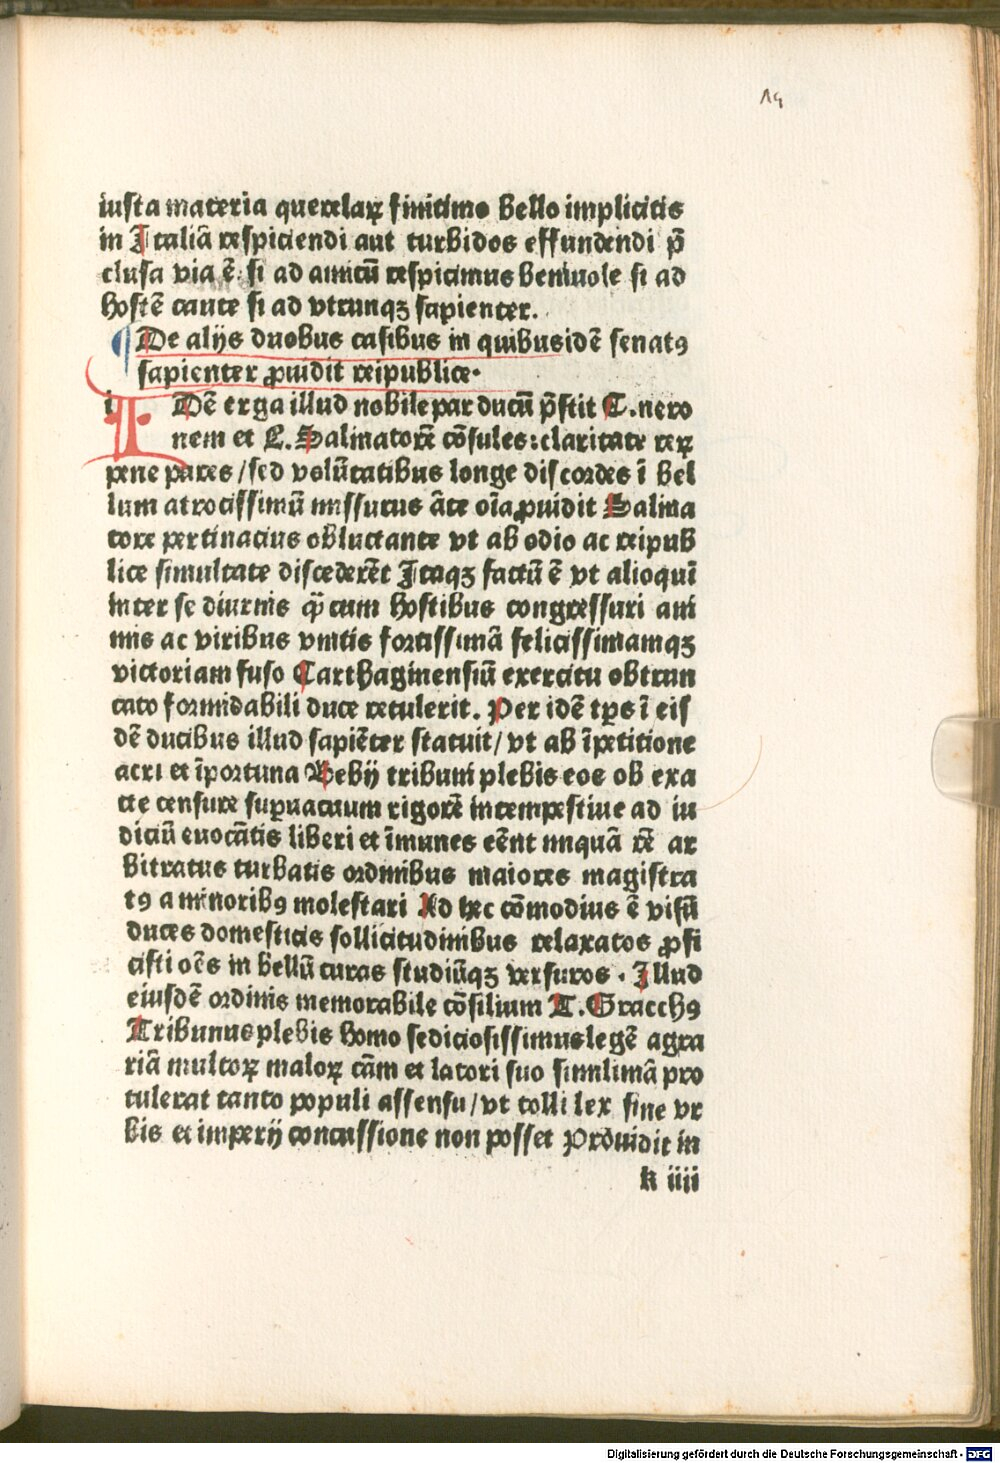 14
iusta materia querelaꝝ finitimo bello implicitis
in Italiā respiciendi aut turbidos effundendi p̄
clusa via ē. si ad amicū respicimus beniuole si ad
hostē caute si ad vtrunqꝫ sapienter.
¶ De alijs duobus casibus in quibus idē senatꝯ
sapienter ꝓuidit reipublice.
i Dē erga illud nobile par ducū p̄stit C. nero
nem et L. Salinatorē cōsules: claritate reꝝ
pene pares / sed volūtatibus longe discordes ī bel
lum atrocissimū missurus āte oīa ꝓuidit Salina
tore pertinacius obluctante vt ab odio ac reipub
lice simultate discederēt Itaqꝫ factū ē vt alioqui
inter se diurnis q̄ cum hostibus congressuri ani
mis ac viribus vnitis fortissimā felicissimamqꝫ
victoriam fuso Carthaginensiū exercitu obtrun
cato formidabili duce retulerit. Per idē tp̄s ī eis
dē ducibus illud sapiēter statuit / vt ab īpetitione
acri et īportuna Bebij tribuni plebis eos ob exa
cte censure supuacuum rigorē intempestiue ad iu
diciū euocātis liberi et īmunes eēnt iniquā rē ar
bitratus turbatis ordinibus maiores magistra
tꝯ a minoribꝯ molestari Ad hec cōmodius ē visū
duces domesticis sollicitudinibus relaxatos ꝓfi
cisti oēs in bellū curas studiūqꝫ versuros . Illud
eiusdē ordinis memorabile cōsilium T. Gracchꝯ
Tribunus plebis homo sediciosissimus legē agra
riā multoꝝ maloꝝ cām et latori suo simlimā pro
tulerat tanto populi assensu / vt tolli lex sine vr
bis et imperij concussione non posset Prouidit in
k iiij
Digitalisierung gefördert durch die Deutsche Forschungsgemeinschaft - DFG